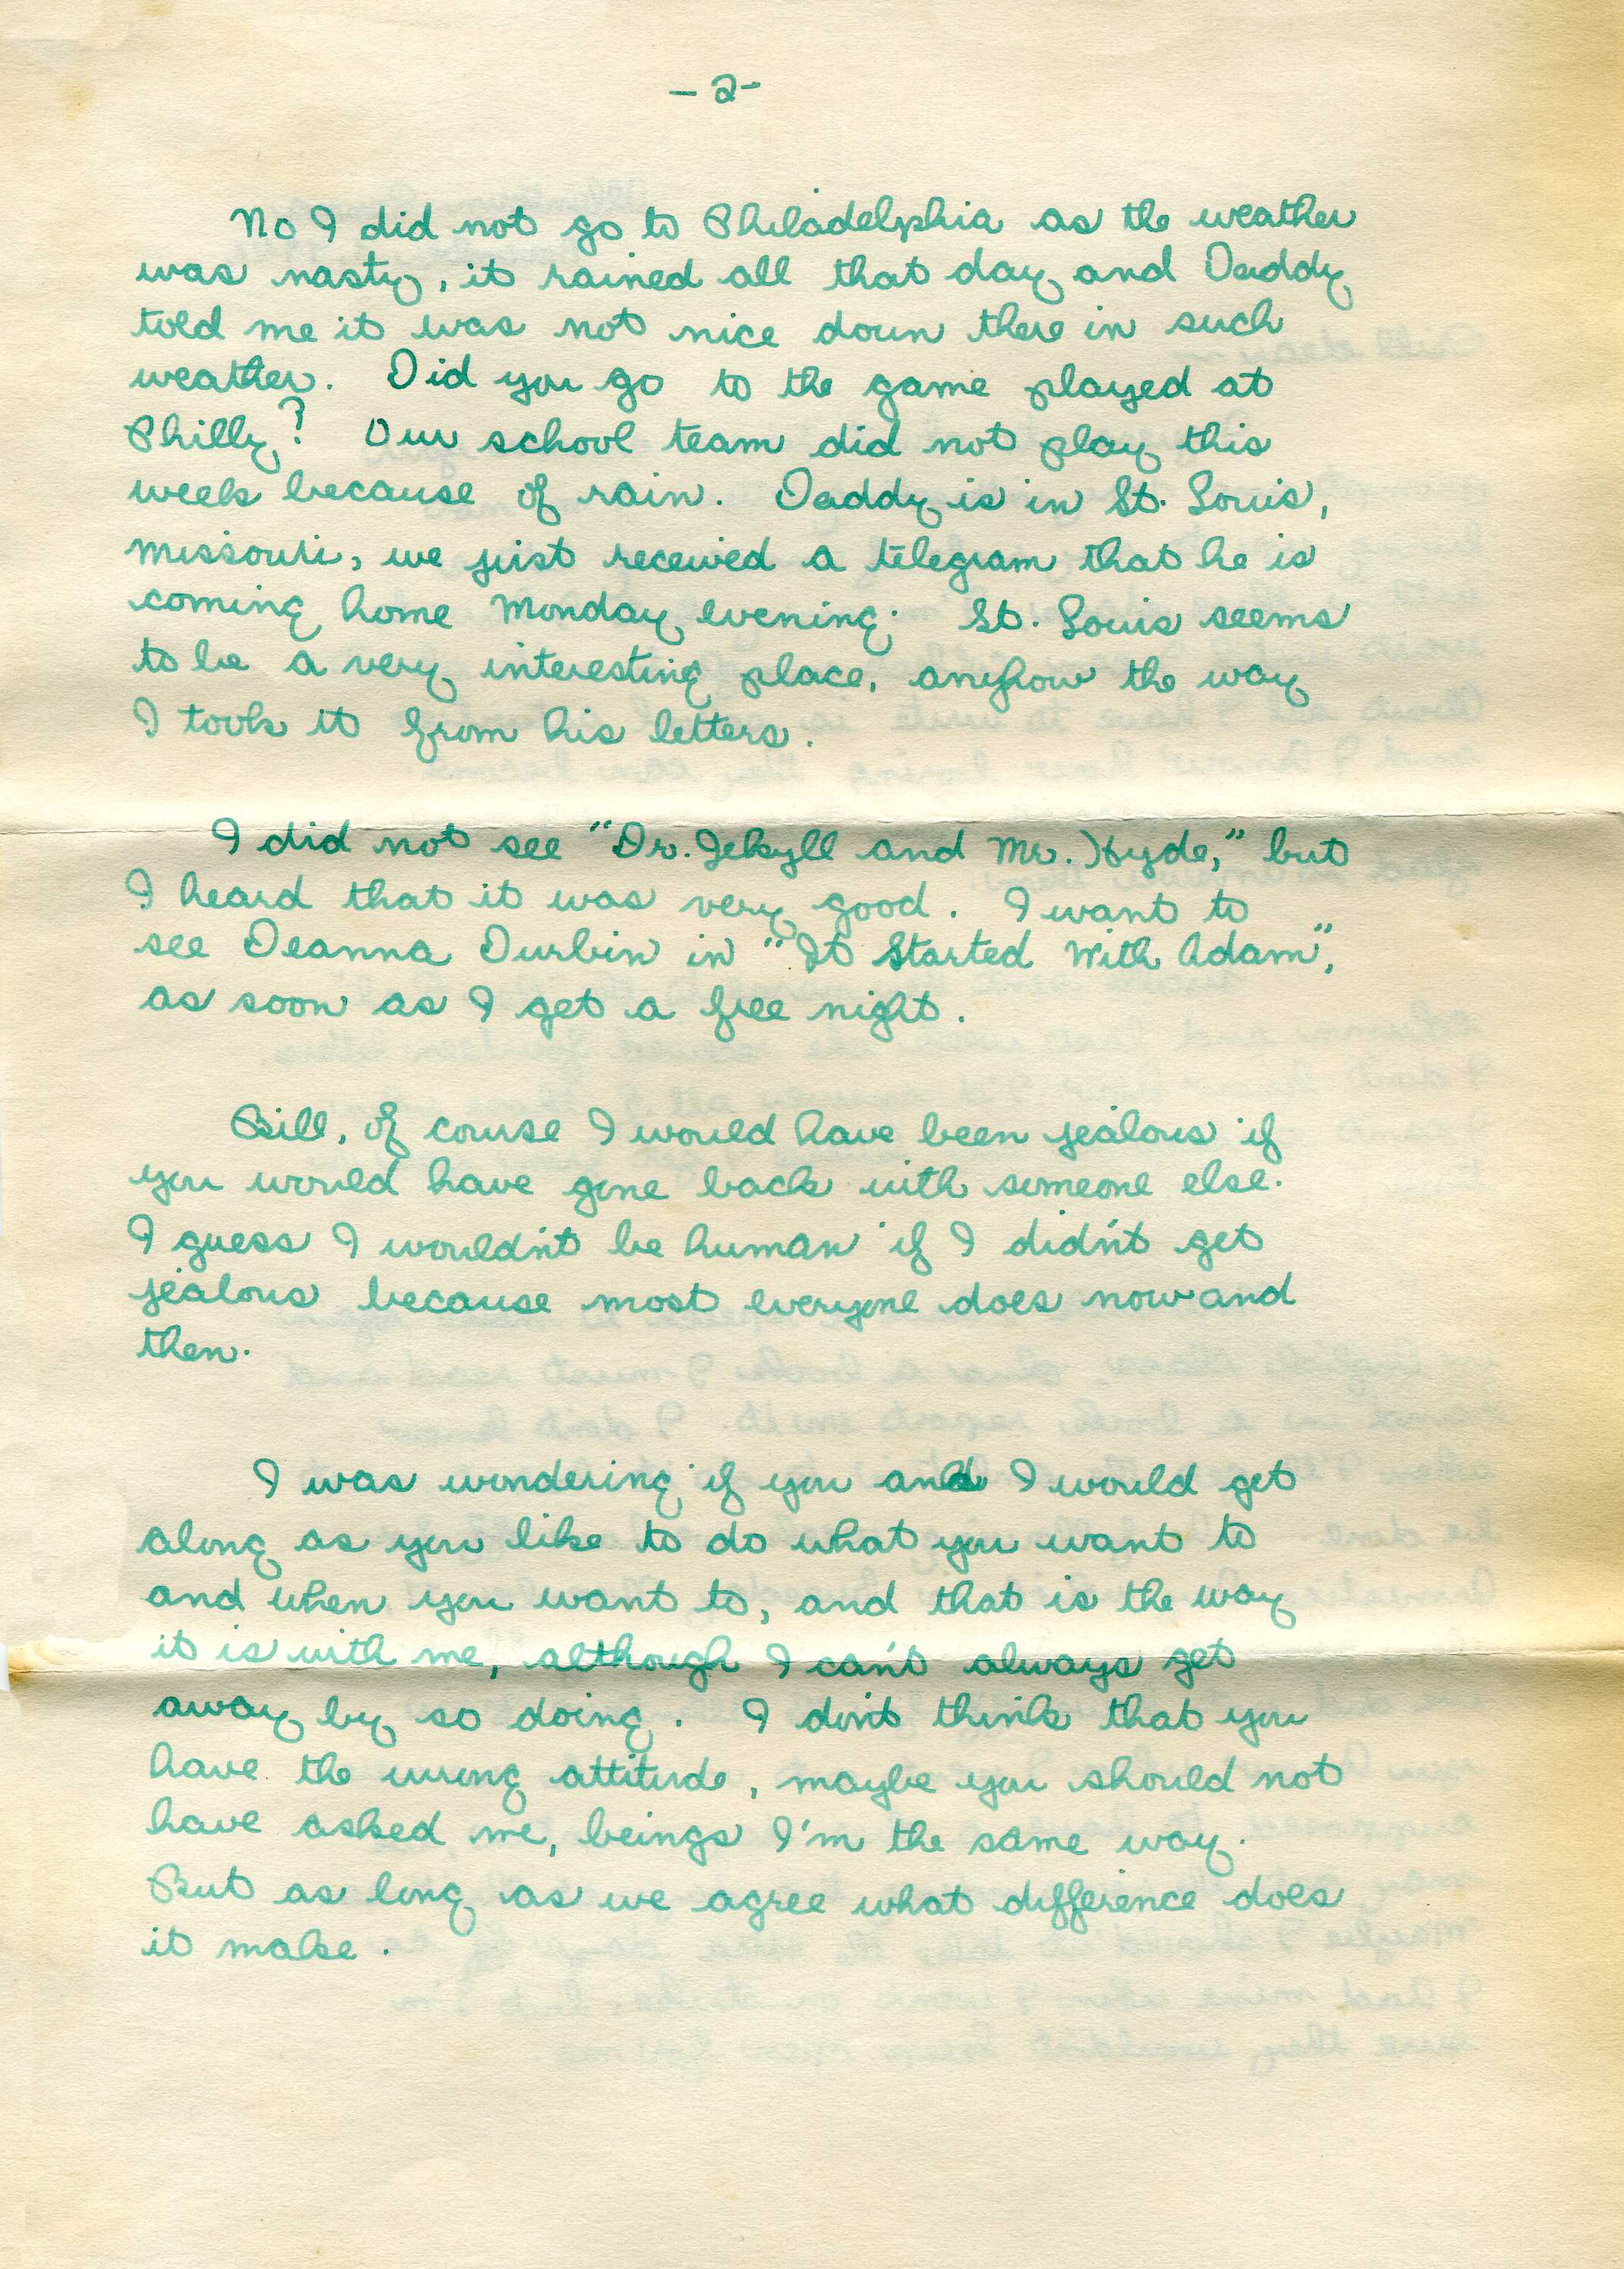 - 2 -
No I did not go to Philadelphia as the weather
was nasty, it rained all that day and Daddy
told me it was not nice down there in such
weather. Did you go to the game played at
Philly? Our school team did not play this
week because of rain. Daddy is in St. Louis,
Missouri, we just received a telegram that he is
coming home Monday evening. St. Louis seems
to be a very interesting place, anyhow the way
I took it from his letters.
I did not see "Dr. Jekyll and Mr. Hyde," but
I heard that it was very good. I want to
see Deanna Durbin in "It Started With Adam",
as soon as I get a free night.
Bill, of course I would have been jealous if
you would have gone back with someone else.
I guess I wouldn't be human if I didn't get
jealous because most everyone does now and
then.
I was wondering if you and I would get
along as you like to do what you want to
and when you want to, and that is the way
it is with me, although I can't always get
away by so doing. I don't think that you
have the wrong attitude, maybe you should not
have asked me, beings I'm the same way.
But as long as we agree what difference does
it make.